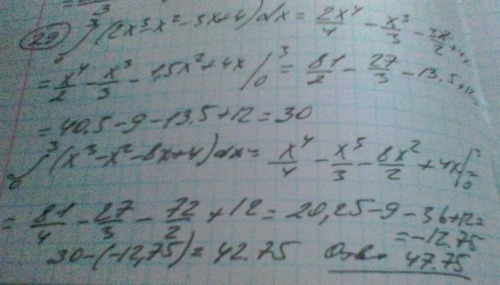 29) ∫₀³ (2x³-x²-3x+4)dx = 2x⁴/4 - x³/3 - 3x²/2 + 4x
= x⁴/2 - x³/3 - 1,5x² + 4x |₀³ = 81/2 - 27/3 - 13.5 +
= 40.5 - 9 - 13.5 + 12 = 30
₀∫³ (x³-x²-8x+4)dx = x⁴/4 - x³/3 - 8x²/2 + 4x |₀ =
= 81/4 - 27/3 - 72/2 + 12 = 20,25 - 9 - 36 + 12 =
= -12,75
30-(-12,75) = 42.75 47.75